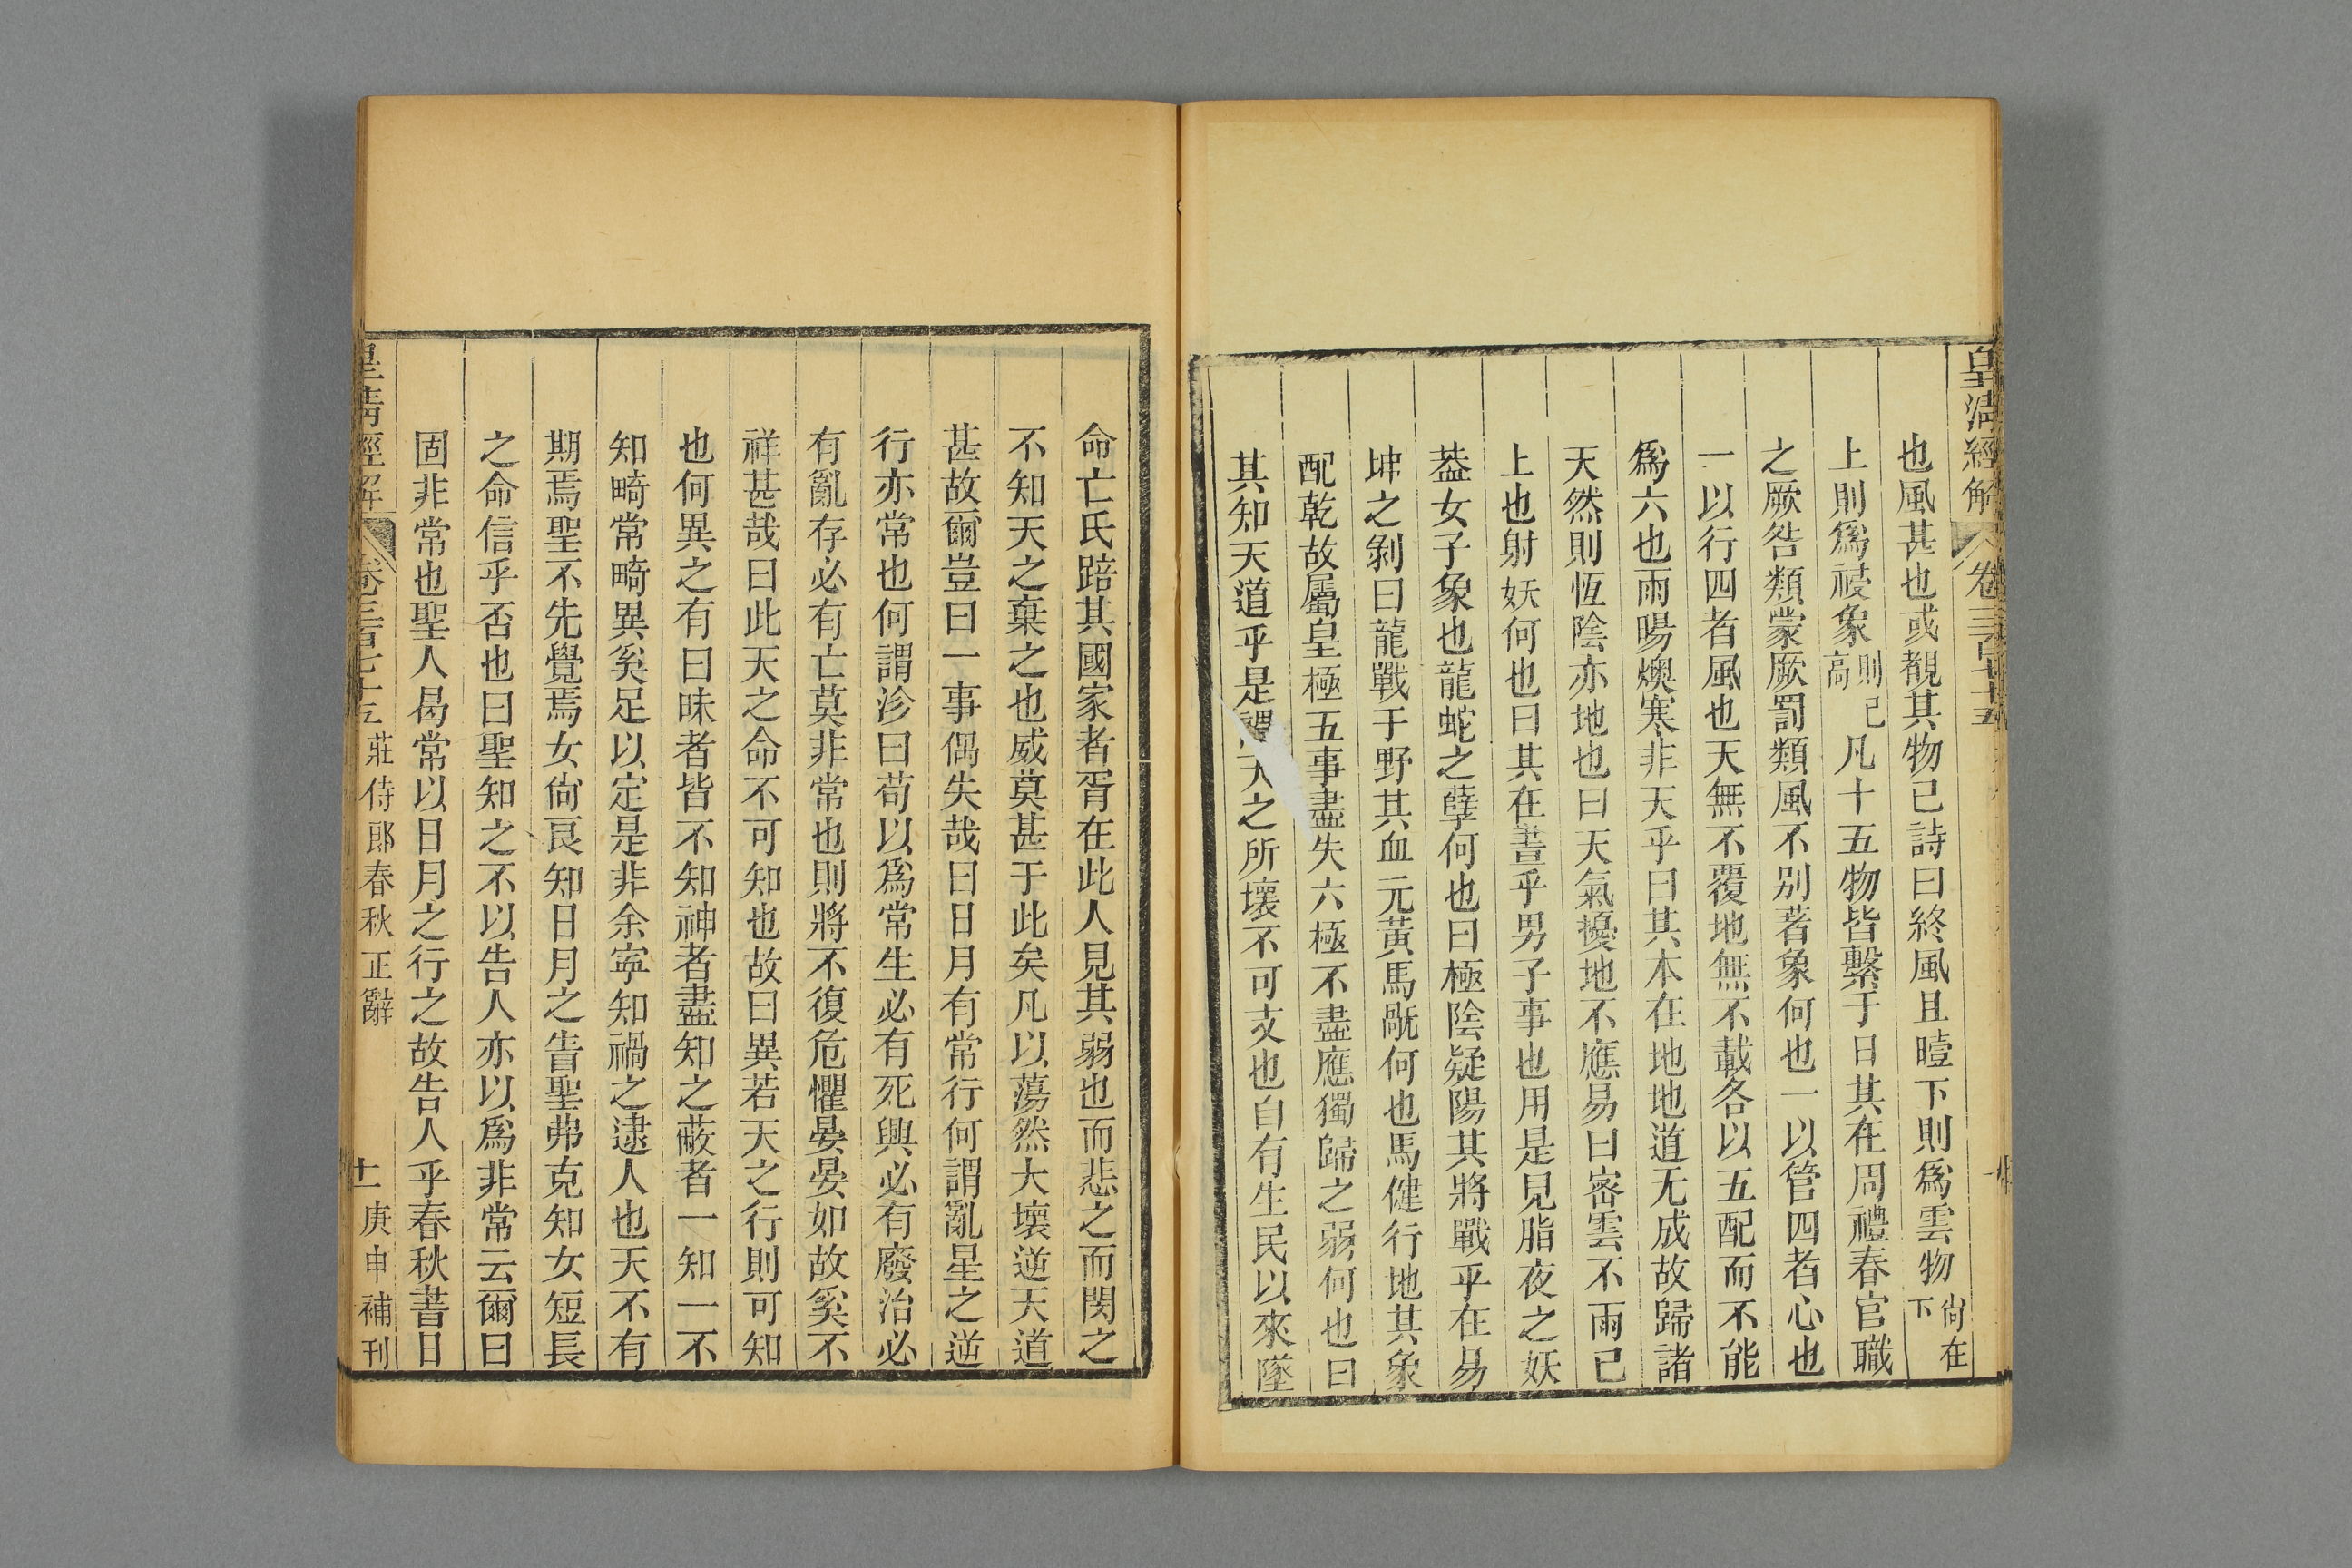 皇清經解
卷三百七十五
也風甚也或覩其物已詩曰終風且曀下則爲雲物尙在下
上則爲祲象則已高凡十五物皆繫于日其在周禮春官職
之厥咎類蒙厥罰類風不別著象何也一以管四者心也
一以行四者風也天無不覆地無不載各以五配而不能
爲六也雨暘燠寒非天乎曰其本在地地道无成故歸諸
天然則恆陰亦地也曰天氣擾地不應易曰密雲不雨已
上也射妖何也曰其在晝乎男子事也用是見脂夜之妖
葢女子象也龍蛇之孽何也曰極陰疑陽其將戰乎在易
坤之剝曰龍戰于野其血元黃馬旤何也馬健行地其象
配乾故屬皇極五事盡失六極不盡應獨歸之弱何也曰
其知天道乎是謂天之所壞不可支也自有生民以來墜
命亡氏踣其國家者胥在此人見其弱也而悲之而閔之
不知天之棄之也威莫甚于此矣凡以蕩然大壞逆天道
甚故爾豈曰一事偶失哉曰日月有常行何謂亂星之逆
行亦常也何謂沴曰苟以爲常生必有死興必有廢治必
有亂存必有亡莫非常也則將不復危懼晏晏如故奚不
祥甚哉曰此天之命不可知也故曰異若天之行則可知
也何異之有曰昧者皆不知神者盡知之蔽者一知一不
知畸常畸異奚足以定是非余寧知禍之逮人也天不有
期焉聖不先覺焉女尙良知日月之眚聖弗克知女短長
之命信乎否也曰聖知之不以告人亦以爲非常云爾曰
固非常也聖人曷常以日月之行之故告人乎春秋書日
皇清經解
卷三百七十五
莊侍郎春秋正辭
十一
庚申補刊